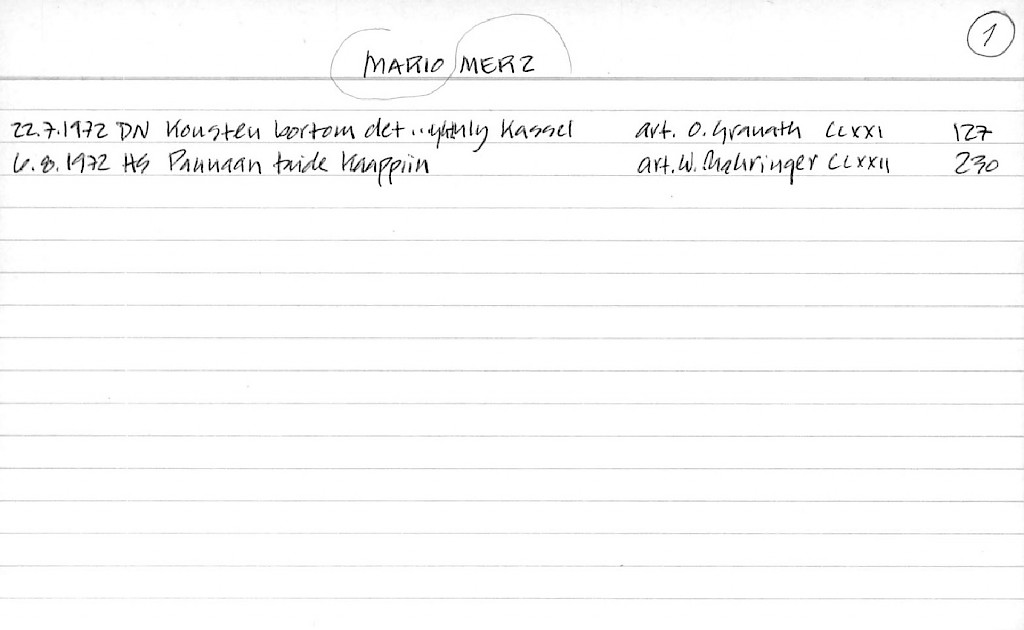 1
MARIO MERZ
22.7.1972 DN Konsten bortom det Kassel art. O. Granath CCXXI 127
6.8.1972 HS Pannaan taide kaappiin art. W. Mahringer CCXXII 230